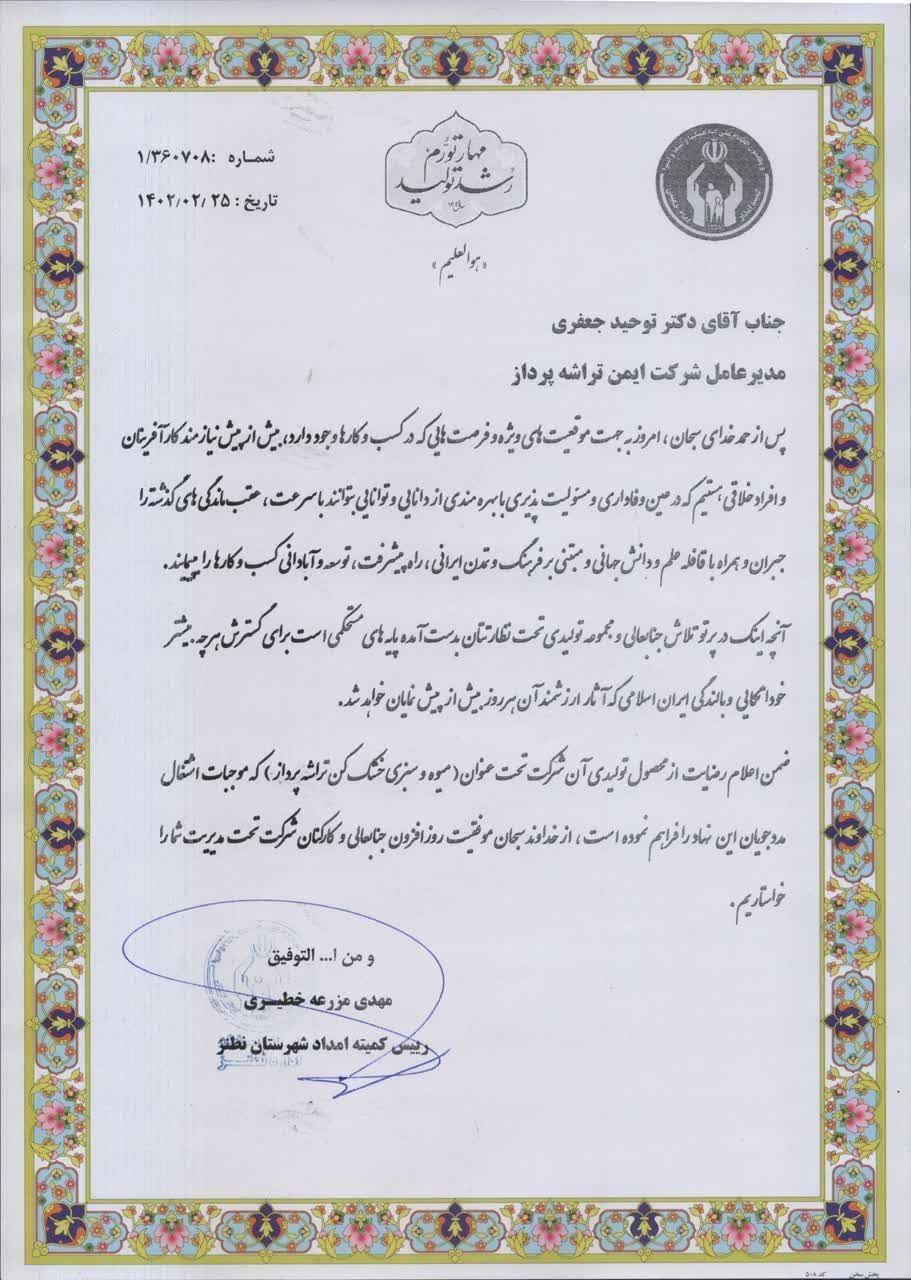 شماره :۱/۳۶۰۷۰۸
تاریخ : ۱۴۰۲/۰۲/۲۵
مهار تورم
رشد تولید
«هوالعلیم»
جناب آقای دکتر توحید جعفری
مدیرعامل شرکت ایمن تراشه پرداز
پس از حمد خدای سبحان ، امروز به جهت موقعیت های ویژه و فرصت هایی که در کسب و کارها وجود دارد، بیش از پیش نیازمند کارآفرینان
و افراد خلاقی هستیم که در عین وفاداری و مسئولیت پذیری با بهره مندی از دانایی و توانایی بتوانند با سرعت ، عقب ماندگی های گذشته را
جبران و همراه با قافله علم و دانش جهانی و مبتنی بر فرهنگ و تمدن ایرانی ، راه پیشرفت ، توسعه و آبادانی کسب و کارها را
آنچه اینک در پرتو تلاش جنابعالی و مجموعه تولیدی تحت نظارتتان بدست آمده پایه های مستحکمی است برای گسترش هرچه بیشتر
خوداتکایی و بالندگی ایران اسلامی که آثار ارزشمند آن هر روز بیش از پیش نمایان خواهد شد.
ضمن اعلام رضایت از محصول تولیدی آن شرکت تحت عنوان (میوه و سبزی خشک کن تراشه پرداز) که موجبات اشتغال
مددجویان این نهاد را فراهم نموده است ، از خداوند سبحان موفقیت روزافزون جنابعالی و کارکنان شرکت تحت مدیریت شما را
خواستاریم .
و من ا... التوفیق
مهدی مزرعه خطیری
رییس کمیته امداد شهرستان نطنز
پخش سخن کد ۵۰۸